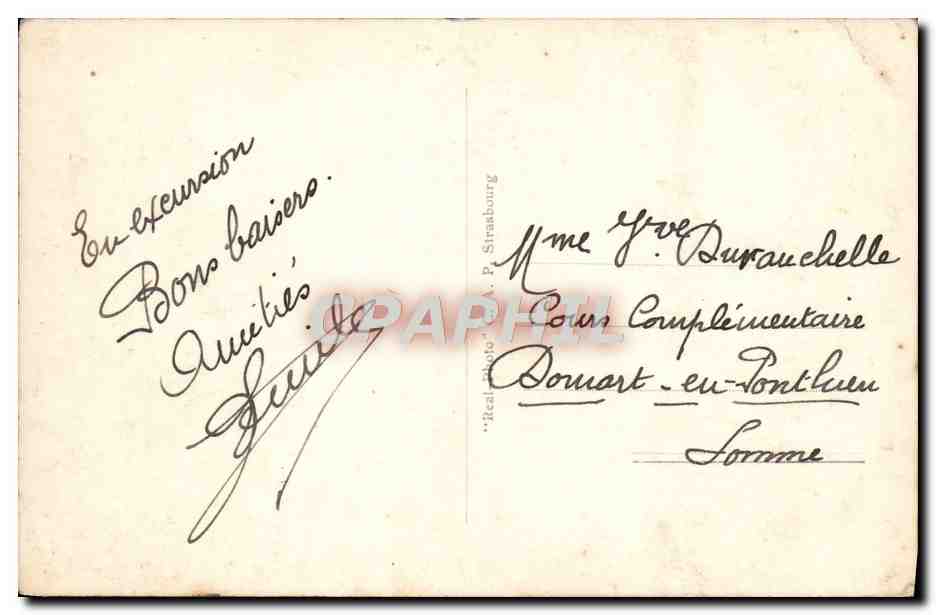 En excursion
Bons baisers.
Amitiés
"Real-Photo" C. A. P. Strasbourg
Mme Yve Duranchelle
Cours Complémentaire
Domart-en-Ponthieu
Somme
CPAPHIL